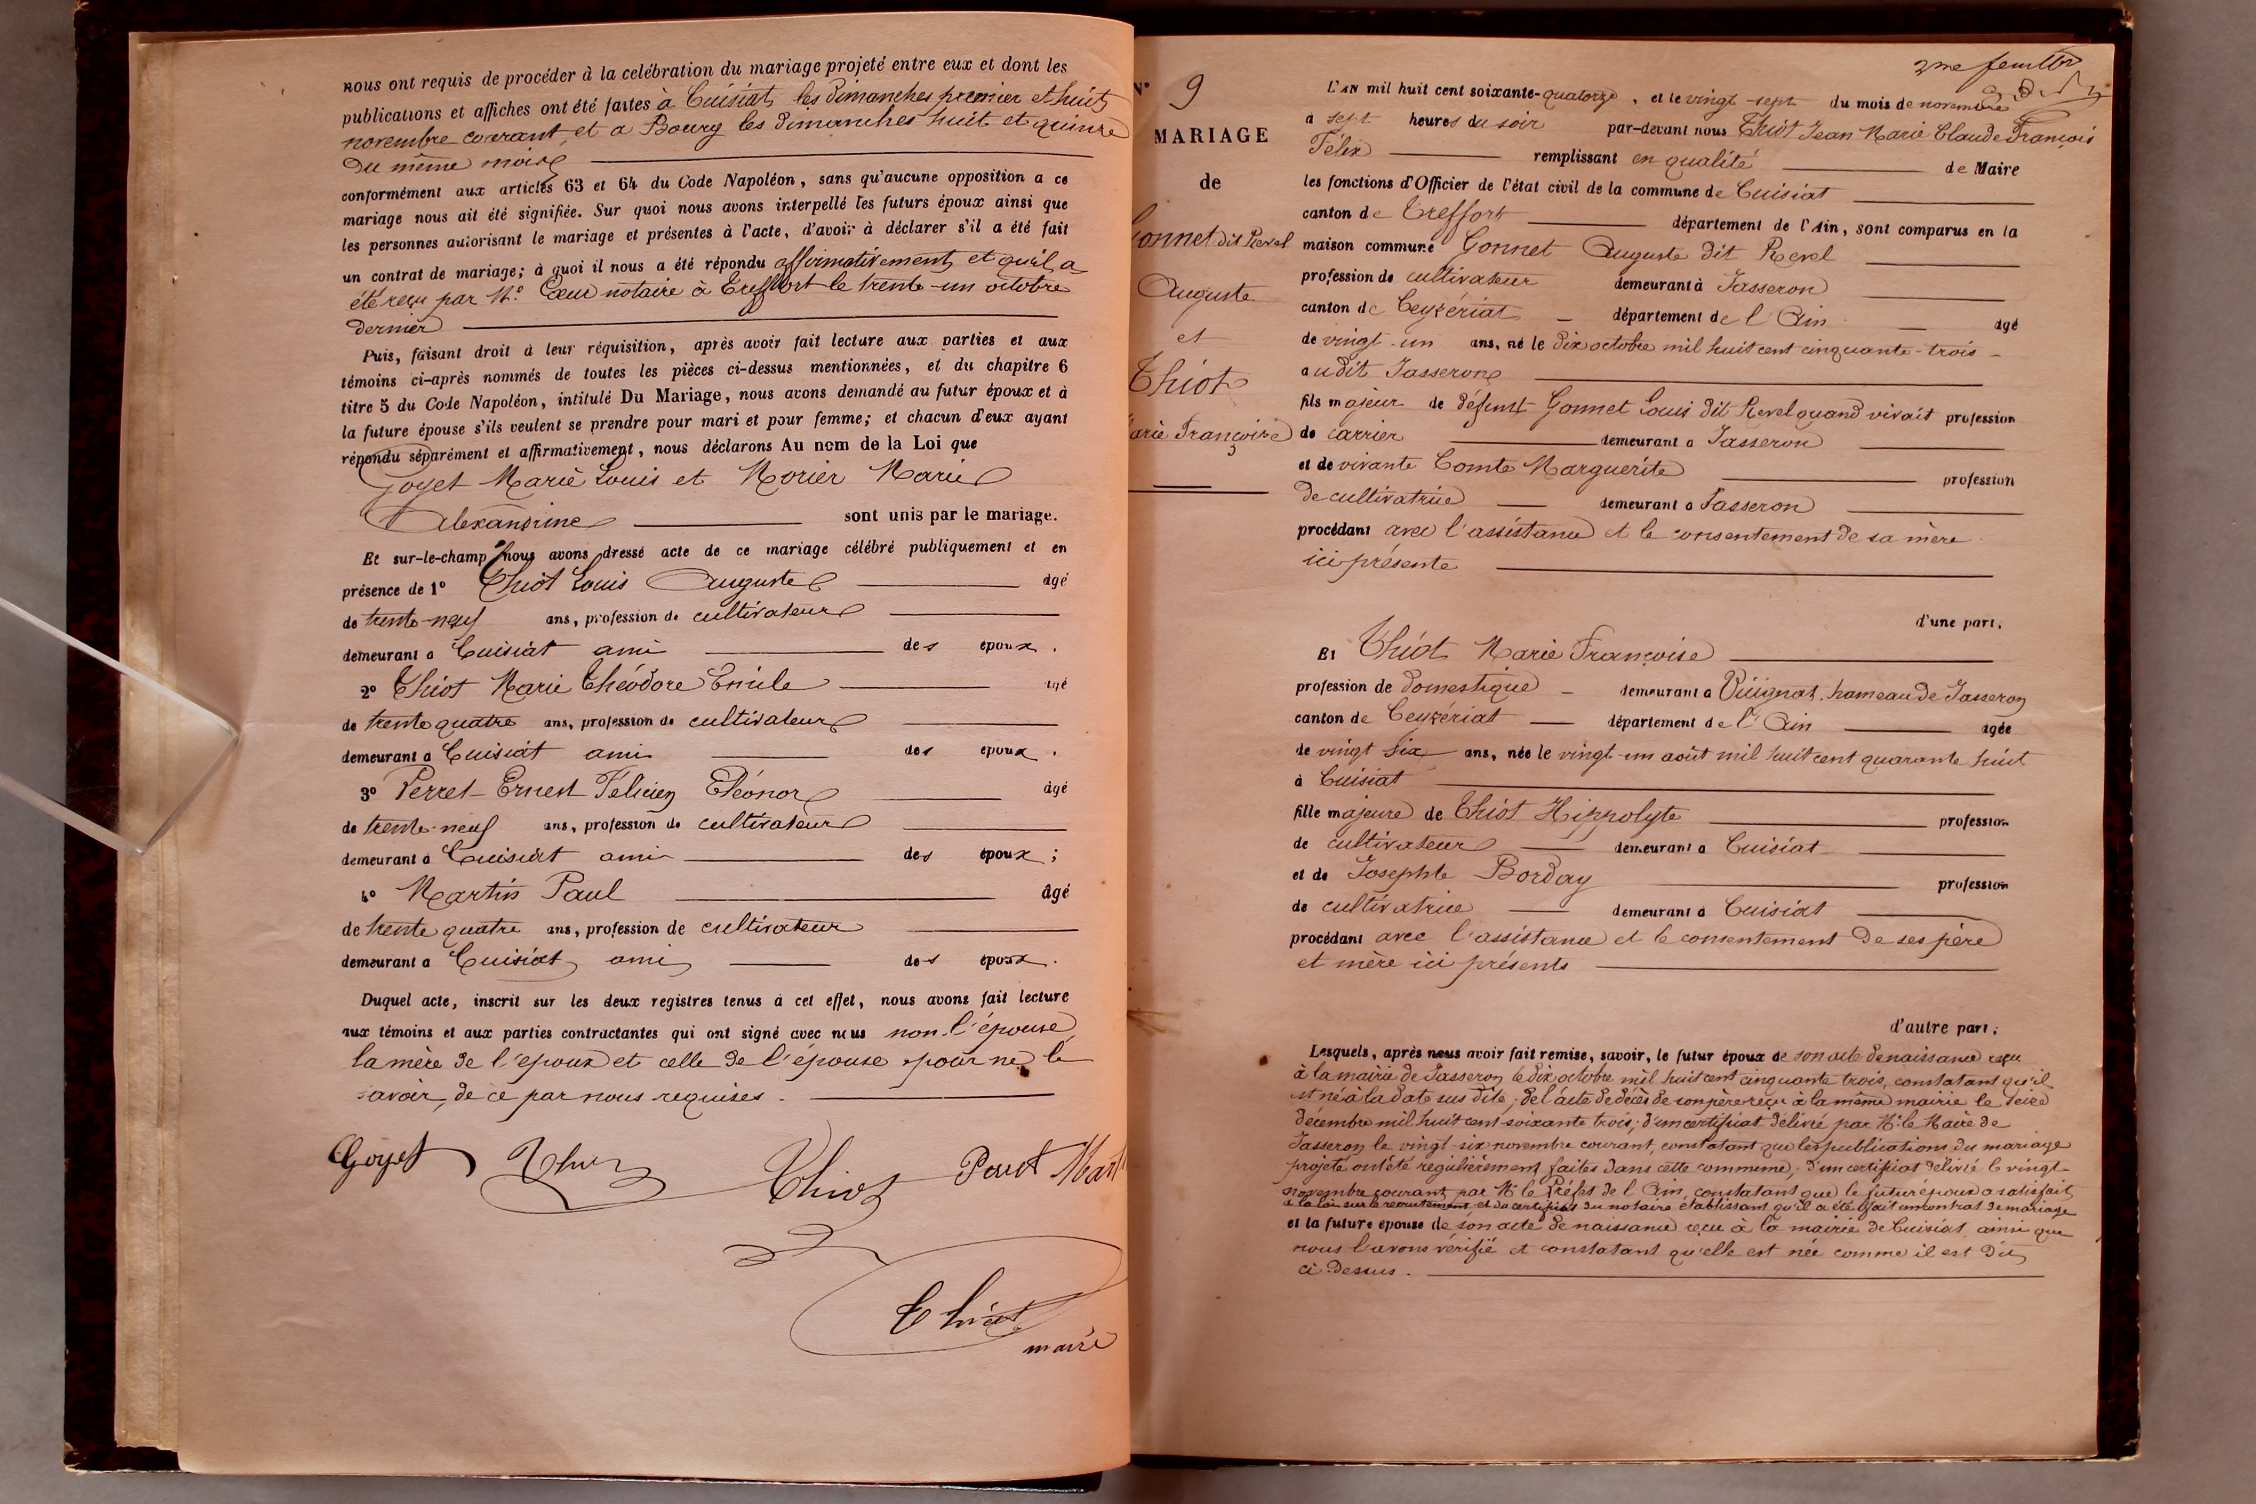 nous ont requis de procéder à la celébration du mariage projeté entre eux et dont les
publications et affiches ont été faites à Cuisiat les dimanches premier et huit
novembre courant et a Bourg les dimanches huit et quinze
du même mois
conformément aux articles 63 et 64 du Code Napoléon, sans qu'aucune opposition a ce
mariage nous ait été signifiée. Sur quoi nous avons interpellé les futurs époux ainsi que
les personnes autorisant le mariage et présentes à l'acte, d'avoir à déclarer s'il a été fait
un contrat de mariage; à quoi il nous a été répondu affirmativement et qu'il a
été reçu par Me Cœur notaire à Treffort le trente-un octobre
dernier
Puis, faisant droit à leur réquisition, après avoir fait lecture aux parties et aux
témoins ci-après nommés de toutes les pièces ci-dessus mentionnées, et du chapitre 6
titre 5 du Code Napoléon, intitulé Du Mariage, nous avons demandé au futur époux et à
la future épouse s'ils veulent se prendre pour mari et pour femme; et chacun d'eux ayant
répondu séparément et affirmativement, nous déclarons Au nom de la Loi que
Goyet Marie Louis et Morier Marie
Alexandrine sont unis par le mariage.
Et sur-le-champ nous avons dressé acte de ce mariage célébré publiquement et en
présence de 1° Thiot Louis Auguste âgé
de trente-neuf ans, profession de cultivateur
demeurant a Cuisiat ami des époux.
2° Thiot Marie Théodore Emile âgé
de trente quatre ans, profession de cultivateur
demeurant a Cuisiat ami des époux.
3° Perret Ernest Félicien Eléonor âgé
de trente-neuf ans, profession de cultivateur
demeurant à Cuisiat ami des époux;
4° Martin Paul âgé
de trente quatre ans, profession de cultivateur
demeurant a Cuisiat ami des époux.
Duquel acte, inscrit sur les deux registres tenus à cet effet, nous avons fait lecture
aux témoins et aux parties contractantes qui ont signé avec nous non l'épouse
la mère de l'époux et celle de l'épouse pour ne le
savoir, de ce par nous requises.
Goyet Thiot Perret
Thiot
maire
2me feuillet
N° 9
MARIAGE
de
Gonnet dit Revel
Auguste
et
Thiot
Marie Françoise
L'AN mil huit cent soixante-quatorze, et le vingt-sept du mois de novembre
a sept heures du soir par-devant nous Thiot Jean Marie Claude François
Félix remplissant en qualité de Maire
les fonctions d'Officier de l'état civil de la commune de Cuisiat
canton de Treffort département de l'Ain, sont comparus en la
maison commune Gonnet Auguste dit Revel
profession de cultivateur demeurant à Jasseron
canton de Ceyzériat département de l'Ain âgé
de vingt-un ans, né le dix octobre mil huit cent cinquante-trois
au dit Jasseron
fils majeur de défunt Gonnet Louis dit Revel quand vivait profession
de carrier demeurant a Jasseron
et de vivante Comte Marguerite profession
de cultivatrice demeurant a Jasseron
procédant avec l'assistance et le consentement de sa mère
ici présente
d'une part.
Et Thiot Marie Françoise
profession de domestique demeurant a hameau de Jasseron
canton de Ceyzériat département de l'Ain âgée
de vingt six ans, née le vingt-un août mil huit cent quarante huit
à Cuisiat
fille majeure de Thiot Hippolyte profession
de cultivateur demeurant a Cuisiat
et de Josephte Borday profession
de cultivatrice demeurant à Cuisiat
procédant avec l'assistance et le consentement de ses père
et mère ici présents
d'autre part.
Lesquels, après nous avoir fait remise, savoir, le futur époux de son acte de naissance reçu
à la mairie de Jasseron le dix octobre mil huit cent cinquante trois, constatant qu'il
est né à la date sus dite; de l'acte de décès de son père reçu à la même mairie le seize
décembre mil huit cent soixante trois; d'un certificat délivré par Mr le Maire de
Jasseron le vingt-six novembre courant, constatant que les publications du mariage
projeté ont été régulièrement faites dans cette commune; d'un certificat délivré le vingt
novembre courant par Mr le Préfet de l'Ain, constatant que le futur époux a satisfait
à la loi sur le recrutement et du certificat du notaire établissant qu'il a été fait un contrat de mariage
et la future épouse de son acte de naissance reçu à la mairie de Cuisiat ainsi que
nous l'avons vérifié et constatant qu'elle est née comme il est dit
ci-dessus.